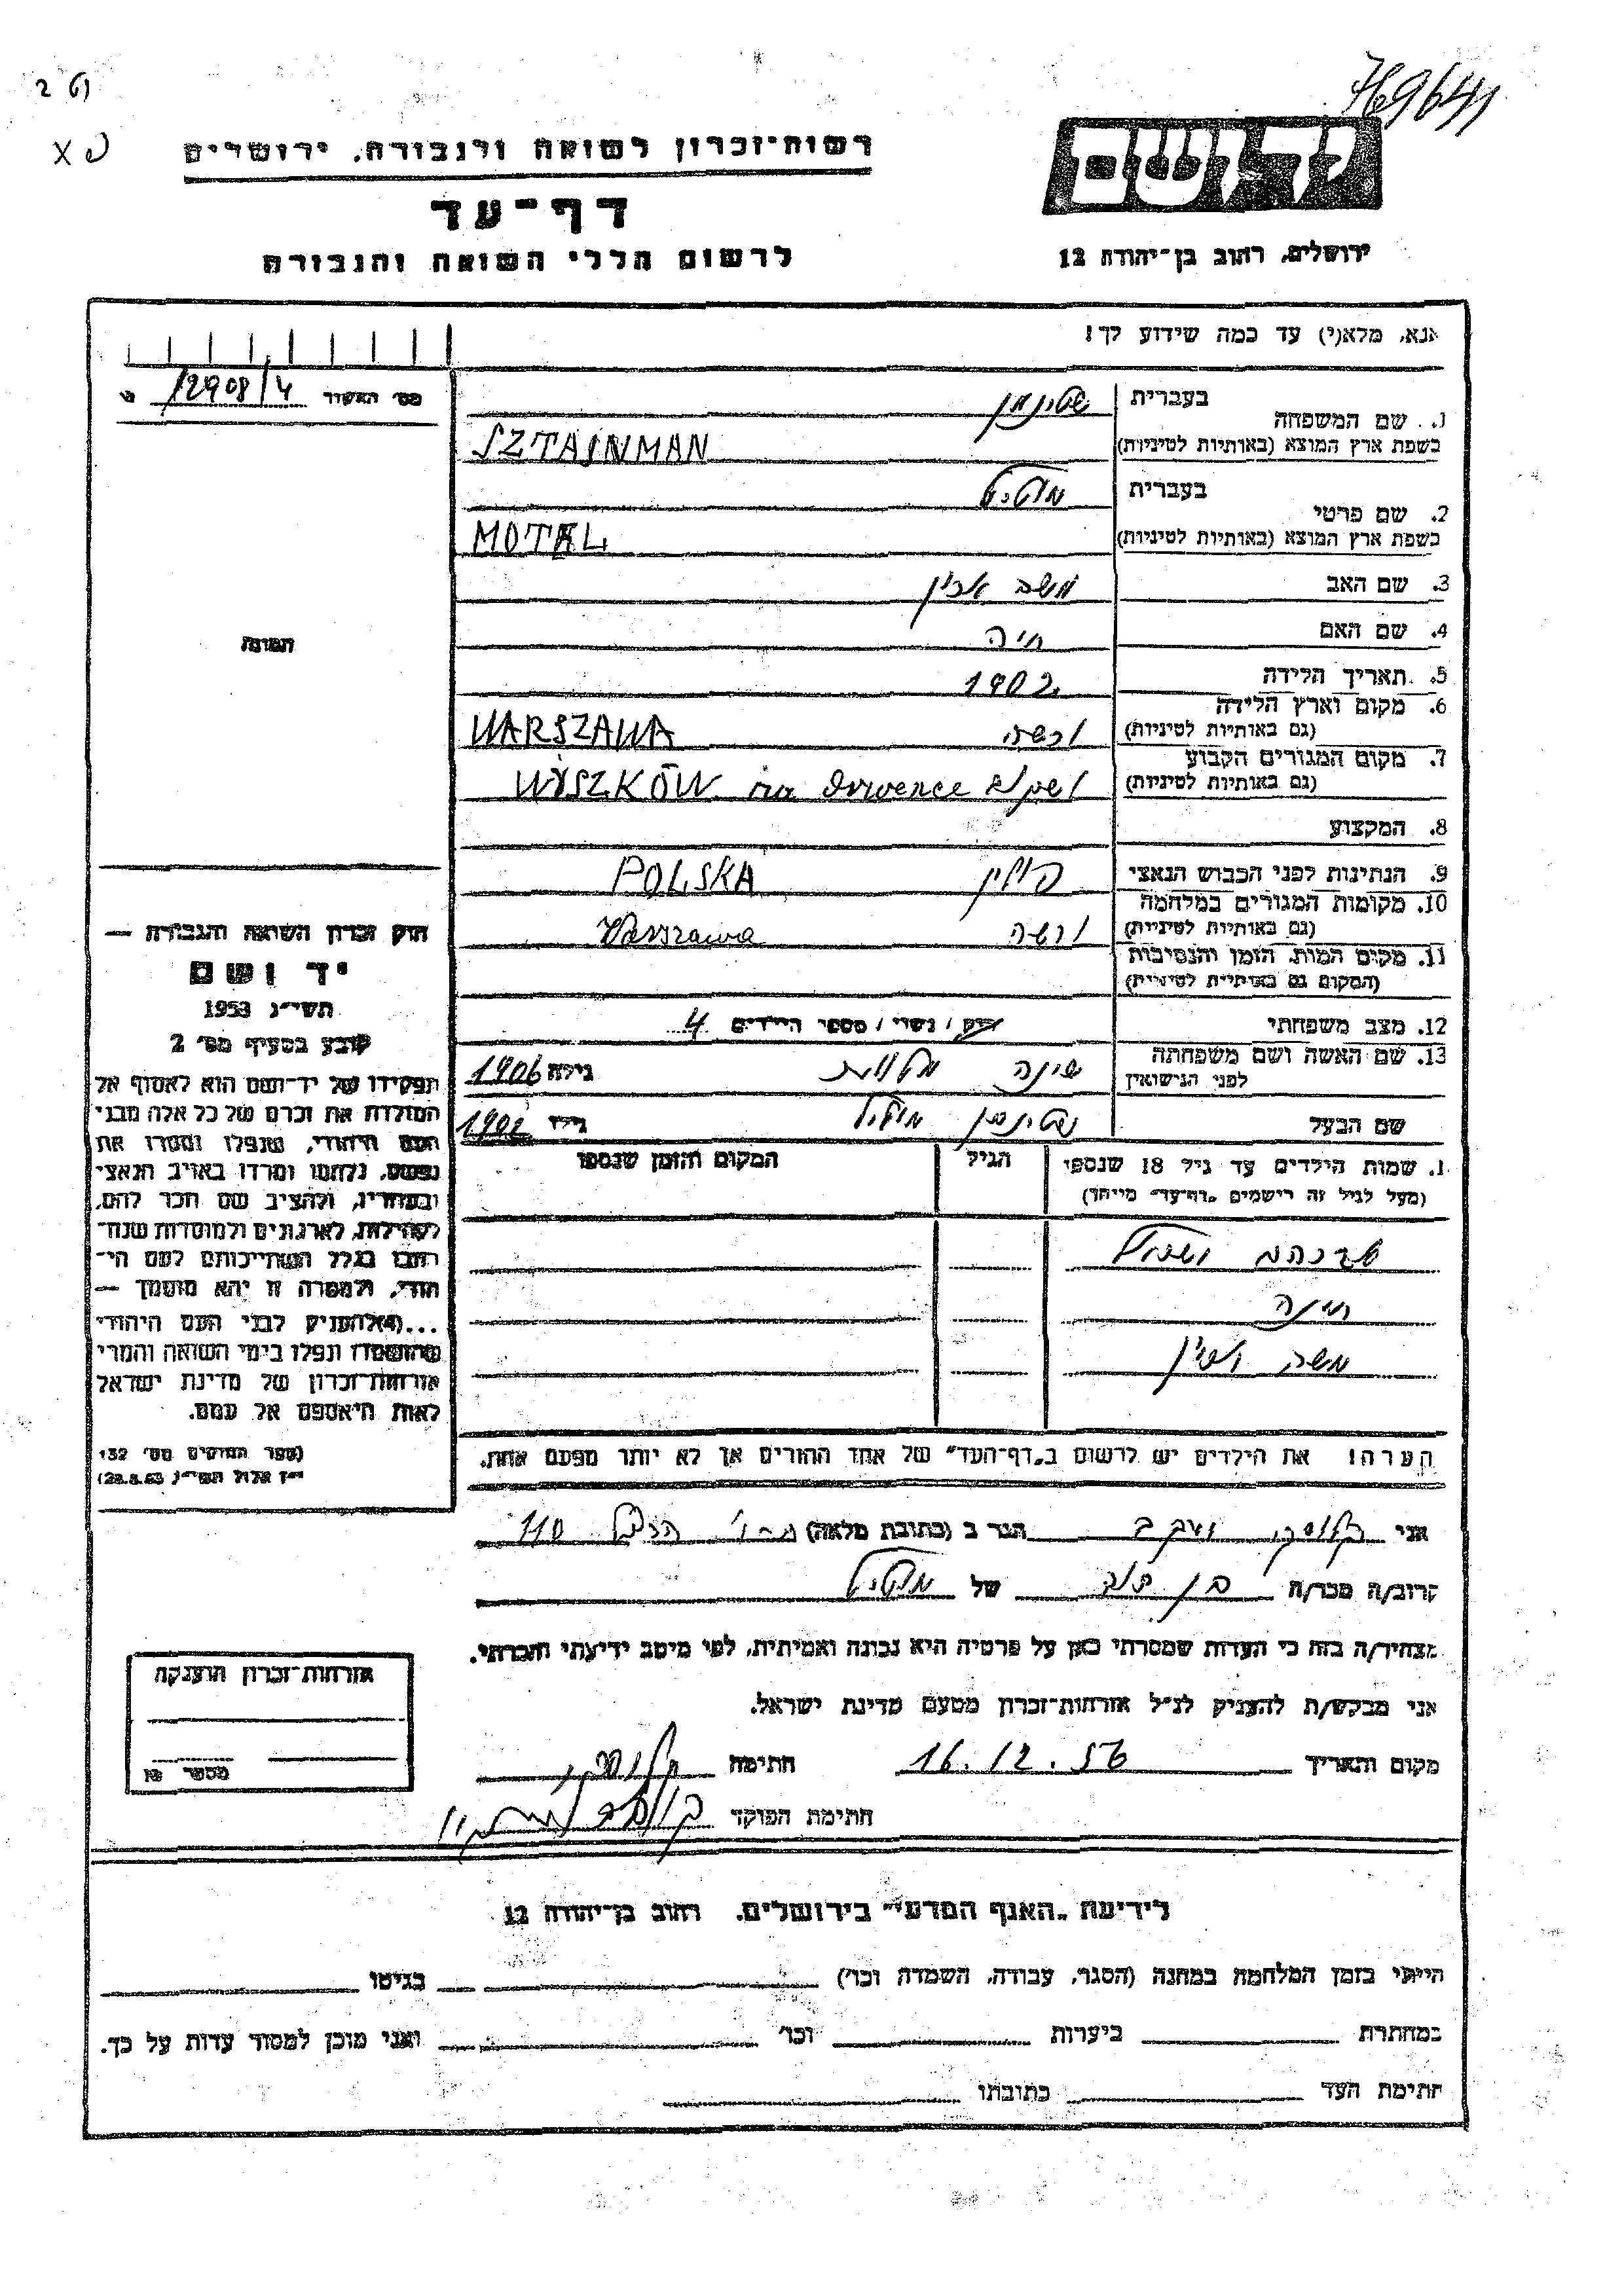 769641
רשות-זכרון לשואה ולגבורה, ירושלים
דף-עד
לרשום חללי השואה והגבורה
יד ושם
ירושלים, רחוב בן-יהודה 12
אנא, מלא(י) עד כמה שידוע לך!
מס' האשור 12908/4
1. שם המשפחה
בעברית שטינמן
בשפת ארץ המוצא (באותיות לטיניות) SZTAJNMAN
2. שם פרטי
בעברית מוטיל
בשפת ארץ המוצא (באותיות לטיניות) MOTEL
3. שם האב משה
4. שם האם חיה
5. תאריך הלידה 1902
6. מקום וארץ הלידה
(גם באותיות לטיניות) ורשה WARSZAWA
7. מקום המגורים הקבוע
(גם באותיות לטיניות) WYSZKÓW na
8. המקצוע
9. הנתינות לפני הכבוש הנאצי פולין POLSKA
10. מקומות המגורים במלחמה
(גם באותיות לטיניות) ורשה Warszawa
11. מקום המות, הזמן והנסיבות
(המקום גם באותיות לטיניות)
12. מצב משפחתי רווק / נשוי / מספר הילדים 4
13. שם האשה ושם משפחתה
לפני הנישואין שינה גילה 1906
שם הבעל שטינמן מוטיל גילו 1902
1. שמות הילדים עד גיל 18 שנספו הגיל המקום והזמן שנספו
(מעל לגיל זה רישמים "דף-עד" מייחד)
משה
הערה! את הילדים יש לרשום ב"דף-העד" של אחד ההורים אך לא יותר מפעם אחת.
תמונה
חוק זכרון השואה והגבורה —
יד ושם
תשי"ג 1953
קובע בסעיף מס' 2
תפקידו של יד-ושם הוא לאסוף אל
המולדת את זכרם של כל אלה מבני
העם היהודי, שנפלו ומסרו את
נפשם, נלחמו ומרדו באויב הנאצי
ובעוזריו, ולהציב שם וזכר להם,
לקהילות, לארגונים ולמוסדות שנח-
רבו בגלל השתייכותם לעם הי-
הודי, ולמטרה זו יהא מוסמך —
...(4)להעניק לבני העם היהודי
שהושמדו ונפלו בימי השואה והמרי
אזרחות-זכרון של מדינת ישראל
לאות היאספם אל עמם.
(ספר החוקים מס' 132
י"ז אלול תשי"ג 28.8.53)
אני יעקב הגר ב (כתובת מלאה) 110
קרוב/ה מכר/ה בן דוד של מוטיל
מצהיר/ה בזה כי העדות שמסרתי כאן על פרטיה היא נכונה ואמיתית, לפי מיטב ידיעתי והכרתי.
אני מבקש/ת להעניק לנ"ל אזרחות-זכרון מטעם מדינת ישראל.
מקום ותאריך 16.12.56 חתימה
חתימת הפוקד
אזרחות-זכרון הוענקה
מספר
לידיעת "האגף המדעי" בירושלים, רחוב בן-יהודה 12
הייתי בזמן המלחמה במחנה (הסגר, עבודה, השמדה וכו') בגיטו
במחתרת ביערות וכו' ואני מוכן למסור עדות על כך.
חתימת העד כתובתו